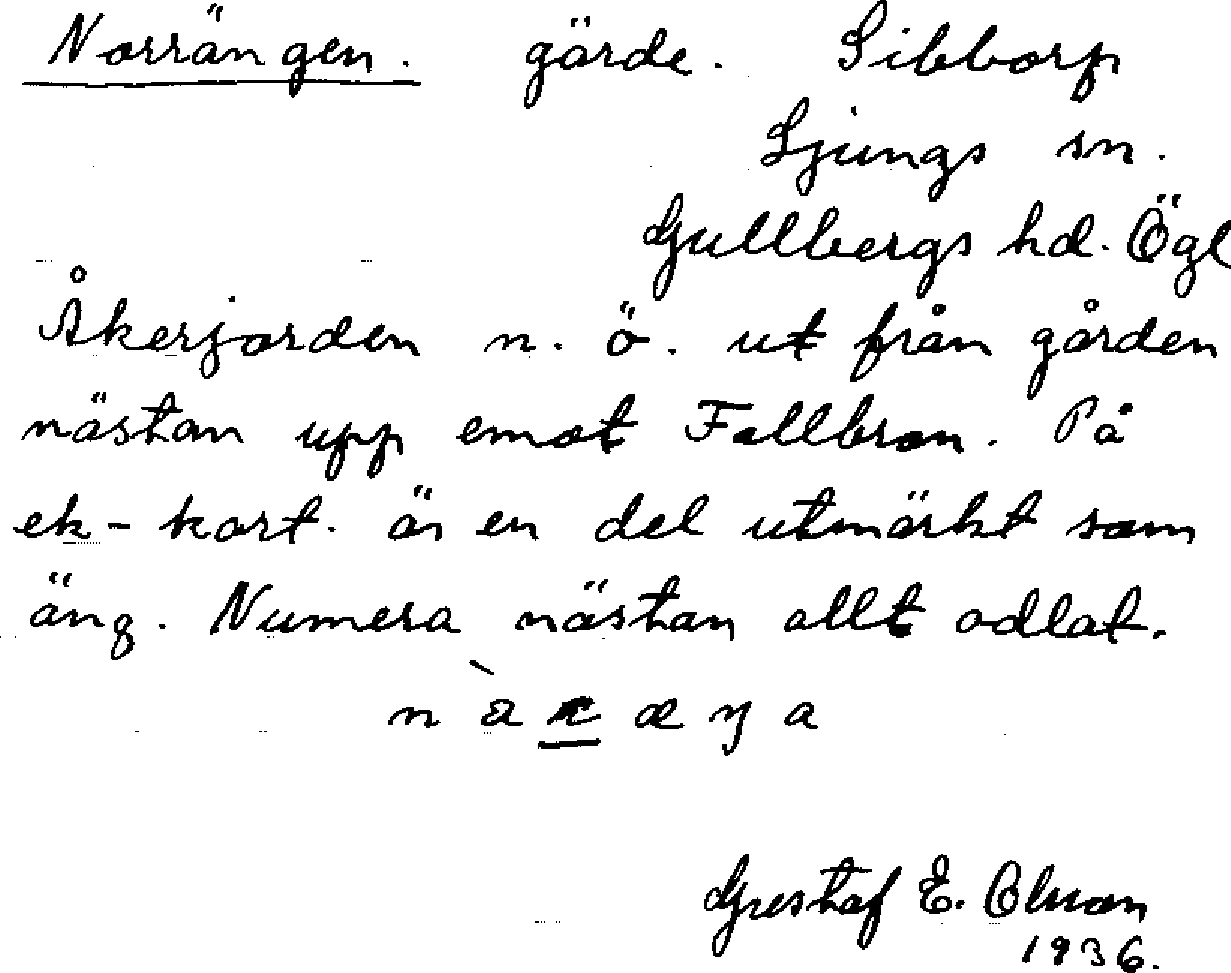 Norrängen. gärde. Sibborp
Ljungs sn.
Gullbergs hd. Ögl
Åkerjorden n. ö. ut från gården
nästan upp emot Fallbron. På
ek-kart. är en del utmärkt som
äng. Numera nästan allt odlat.
Gustaf E. Olson
1936.